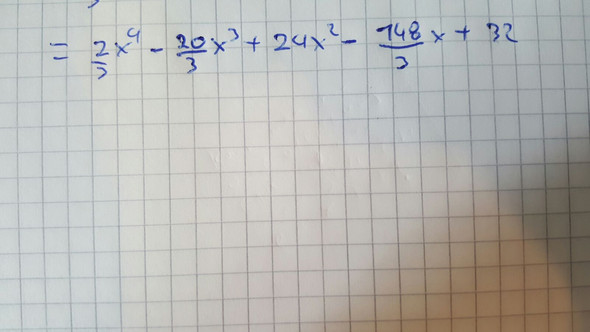 = 2/3 x⁴ - 20/3 x³ + 24x² - 148/3 x + 32